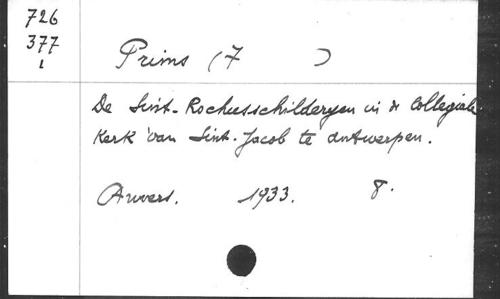 726
377
1
Prims (F )
De Sint-Rochusschilderyen in de Collegiale
Kerk van Sint-Jacob te Antwerpen.
Anvers. 1933. 8.